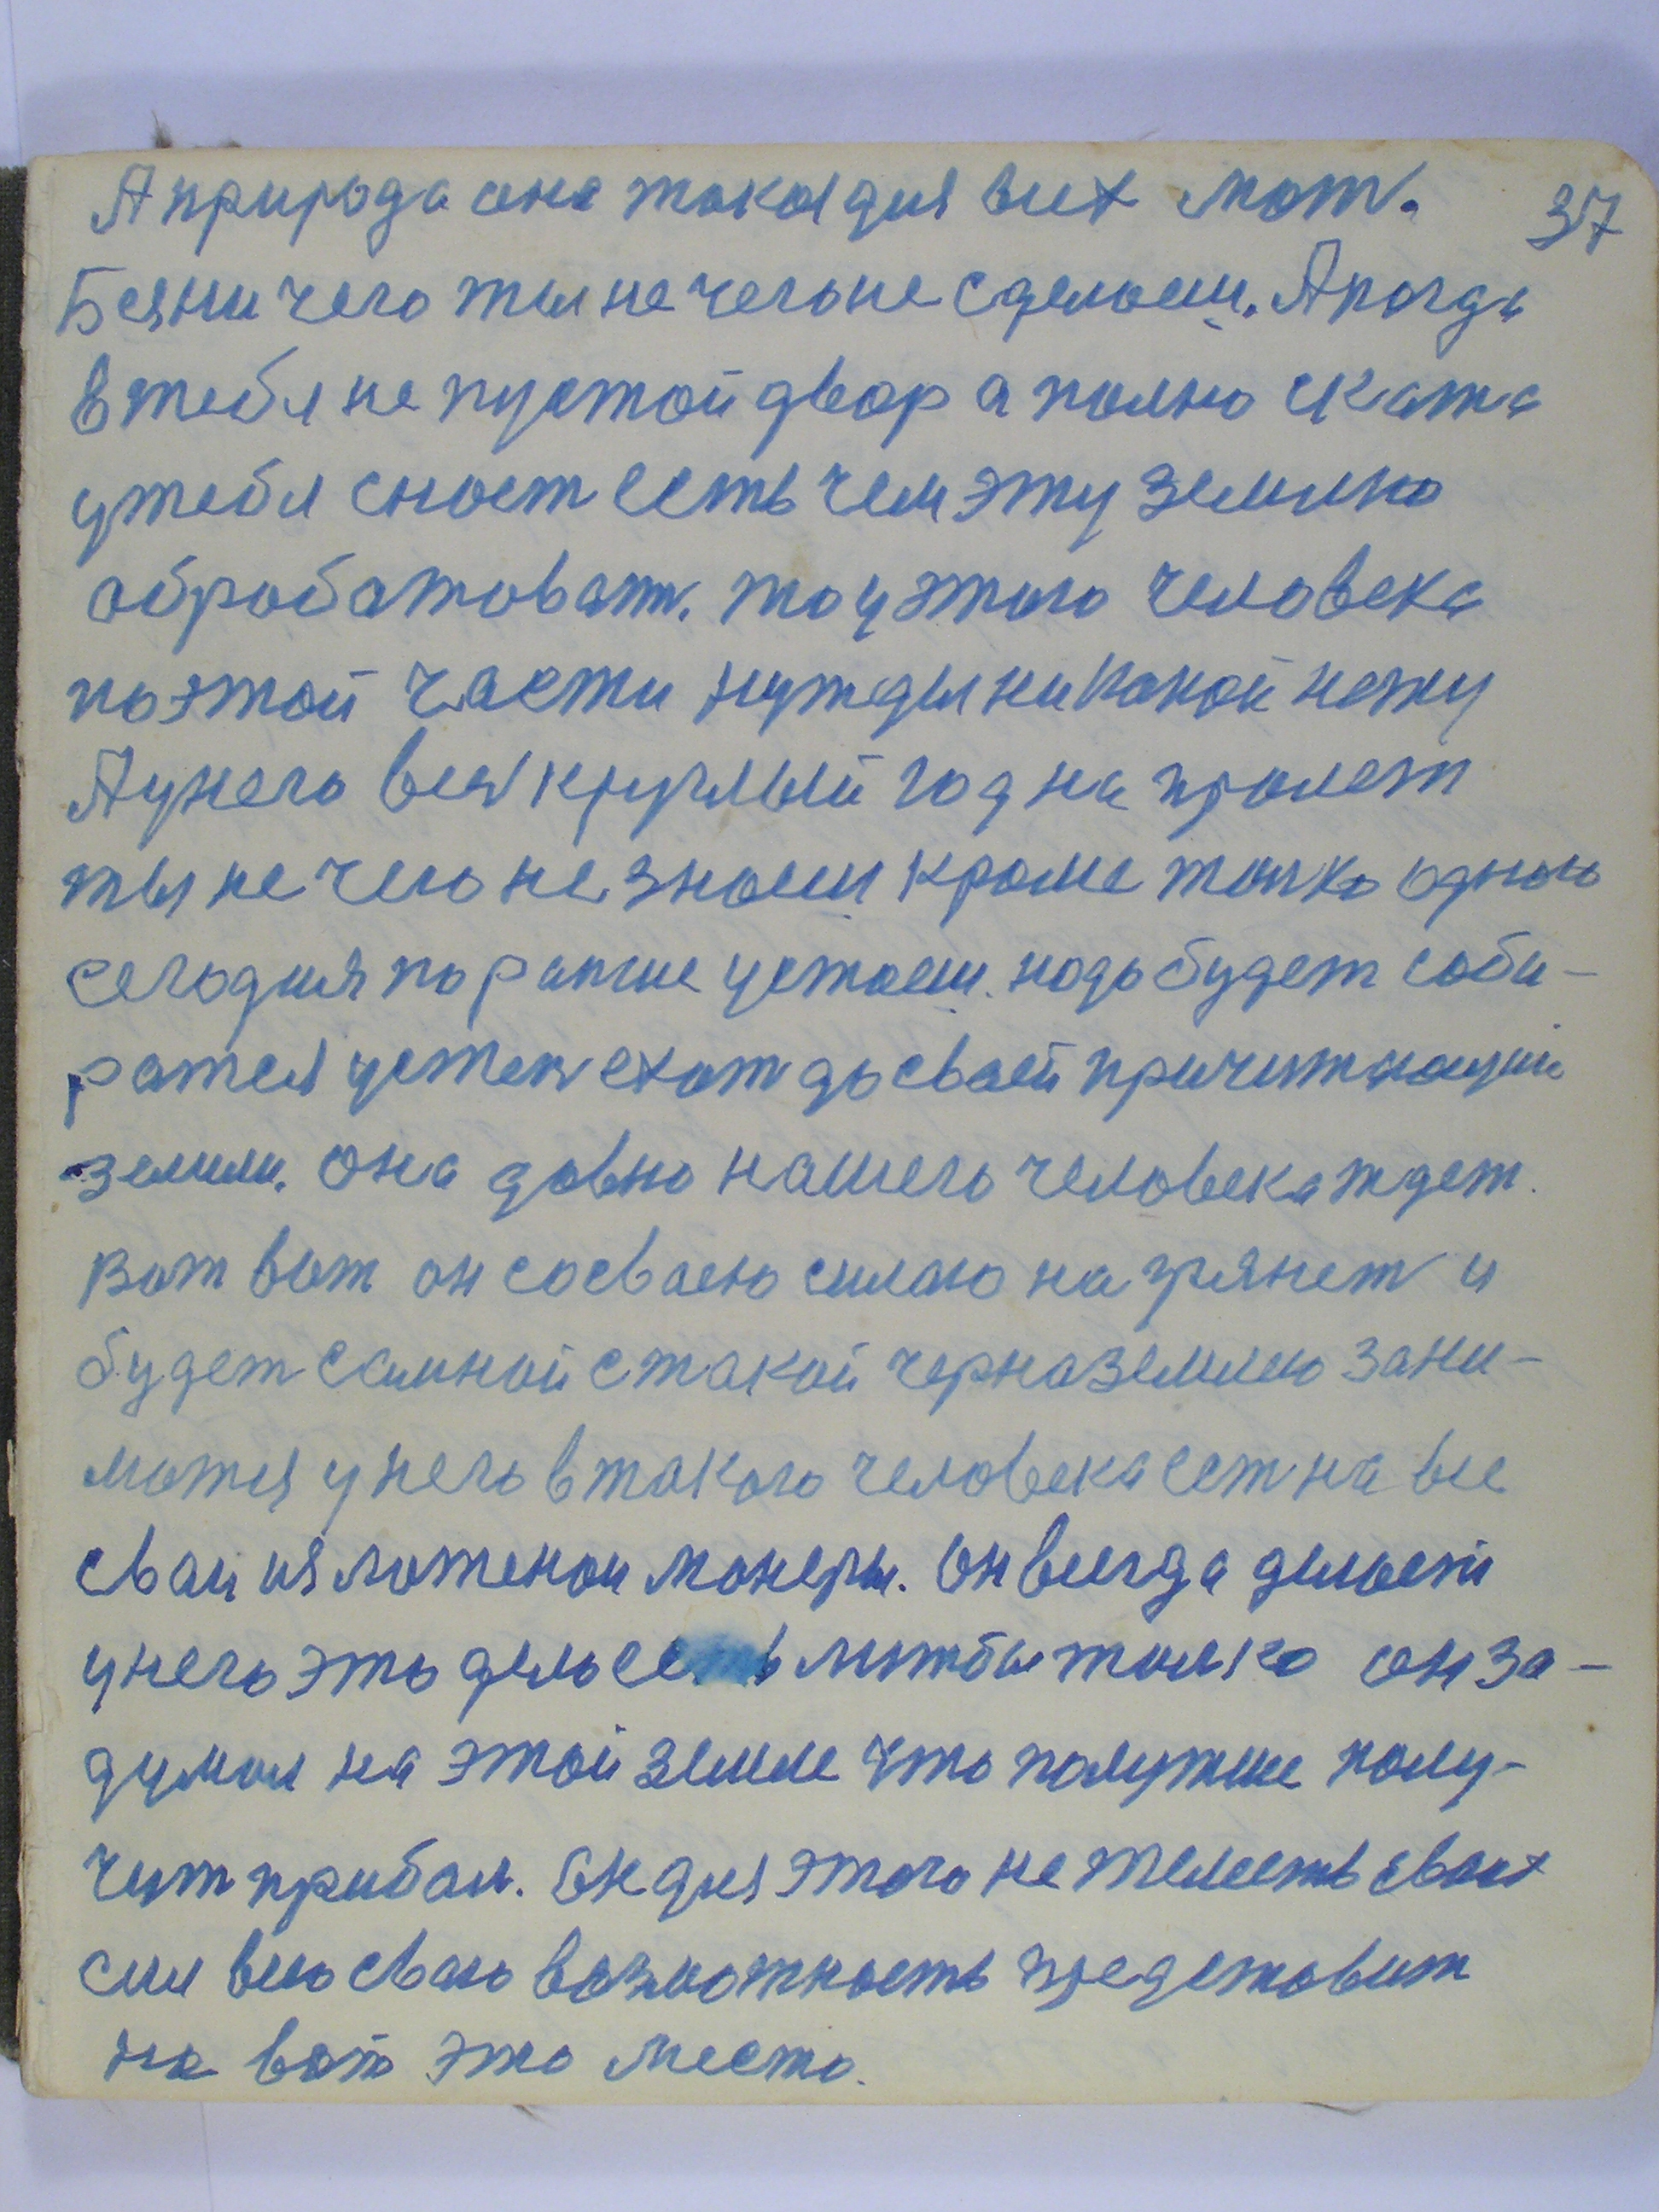 А природа она такая для всих мат. 37
Без ни чего ты не чего не сделаеш. А когда
в тебя не пустой двор а полно ската
у тебя снаст есть чем эту землю
обработоват. то у этого человека
по этой части нужды ни какой нету
А у него весь круглый год на пролет
ты не чего не знаеш кроме толко одного
сегодня по раньше устаеш. надо будет соби-
ратся устен ехат до своей причитающий
земли. она давно нашего человека ждет.
Вот вот он со своею силаю нагрянет и
будет самной с такой черназемлею зани-
матся у него в такого человека ест на все
сваи изложеной манеры. он всегда делает
у него это дело есть лижбы толко он за-
думал на этой земле что получше полу-
чит прибал. Он для этого не желееть своих
сил всю сваю возможность представит
на вот это место.